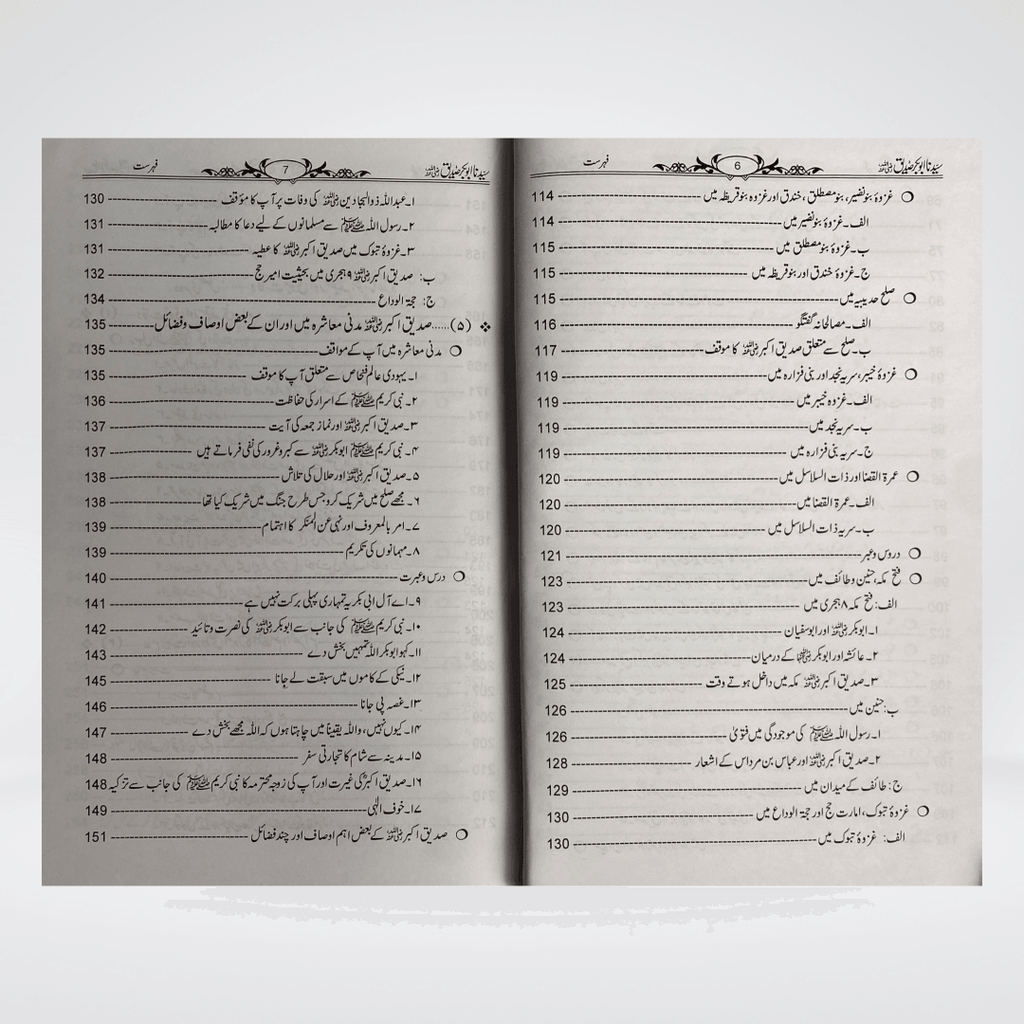 سیدنا ابوبکر صدیق رضی اللہ عنہ 6 فہرست
غزوۂ بنو نضیر، بنو مصطلق، خندق اور غزوہ بنو قریظہ میں 114
الف۔ غزوۂ بنو نضیر میں 114
ب۔ غزوۂ بنو مصطلق میں 115
ج۔ غزوۂ خندق اور بنو قریظہ میں 115
صلح حدیبیہ میں 115
الف۔ مصالحانہ گفتگو 116
ب۔ صلح سے متعلق صدیق اکبر رضی اللہ عنہ کا موقف 117
غزوۂ خیبر، سریہ نجد اور بنی فزارہ میں 119
الف۔ غزوہ خیبر میں 119
ب۔ سریہ نجد میں 119
ج۔ سریہ بنی فزارہ میں 119
عمرۃ القضا اور ذات السلاسل میں 120
الف۔ عمرۃ القضا میں 120
ب۔ سریہ ذات السلاسل میں 120
دروس وعبر 121
فتح مکہ، حنین و طائف میں 123
الف: فتح مکہ ۸ ہجری میں 123
۱۔ ابوبکر رضی اللہ عنہ اور ابوسفیان 124
۲۔ عائشہ اور ابوبکر رضی اللہ عنہما کے درمیان 124
۳۔ صدیق اکبر رضی اللہ عنہ مکہ میں داخل ہوتے وقت 125
ب: حنین میں 126
۱۔ رسول اللہ ﷺ کی موجودگی میں فتویٰ 126
۲۔ صدیق اکبر رضی اللہ عنہ اور عباس بن مرداس کے اشعار 128
ج: طائف کے میدان میں 129
غزوۂ تبوک، امارت حج اور حجۃ الوداع میں 130
الف: غزوۂ تبوک میں 130
سیدنا ابوبکر صدیق رضی اللہ عنہ 7 فہرست
۱۔ عبداللہ ذوالبجادین رضی اللہ عنہ کی وفات پر آپ کا مؤقف 130
۲۔ رسول اللہ ﷺ سے مسلمانوں کے لیے دعا کا مطالبہ 131
۳۔ غزوۂ تبوک میں صدیق اکبر رضی اللہ عنہ کا عطیہ 131
ب: صدیق اکبر رضی اللہ عنہ ۹ ہجری میں بحیثیت امیر حج 132
ج: حجۃ الوداع 134
❖ (۵)......صدیق اکبر رضی اللہ عنہ مدنی معاشرہ میں اور ان کے بعض اوصاف و فضائل 135
مدنی معاشرہ میں آپ کے مواقف 135
۱۔ یہودی عالم فنحاص سے متعلق آپ کا موقف 135
۲۔ نبی کریم ﷺ کے اسرار کی حفاظت 136
۳۔ صدیق اکبر رضی اللہ عنہ اور نماز جمعہ کی آیت 137
۴۔ نبی کریم ﷺ ابوبکر رضی اللہ عنہ سے کبر و غرور کی نفی فرماتے ہیں 137
۵۔ صدیق اکبر رضی اللہ عنہ اور حلال کی تلاش 138
۶۔ مجھے صلح میں شریک کرو جس طرح جنگ میں شریک کیا تھا 138
۷۔ امر بالمعروف اور نہی عن المنکر کا اہتمام 139
۸۔ مہمانوں کی تکریم 139
درس وعبرت 140
۹۔ اے آل ابی بکر یہ تمہاری پہلی برکت نہیں ہے 141
۱۰۔ نبی کریم ﷺ کی جانب سے ابوبکر رضی اللہ عنہ کی نصرت و تائید 142
۱۱۔ کہو ابوبکر اللہ تمہیں بخش دے 143
۱۲۔ نیکی کے کاموں میں سبقت لے جانا 145
۱۳۔ غصہ پی جانا 146
۱۴۔ کیوں نہیں، واللہ یقیناً میں چاہتا ہوں کہ اللہ مجھے بخش دے 147
۱۵۔ مدینہ سے شام کا تجارتی سفر 148
۱۶۔ صدیق اکبرؓ کی غیرت اور آپ کی زوجہ محترمہ کا نبی کریم ﷺ کی جانب سے تزکیہ 148
۱۷۔ خوف الٰہی 149
صدیق اکبر رضی اللہ عنہ کے بعض اہم اوصاف اور چند فضائل 151